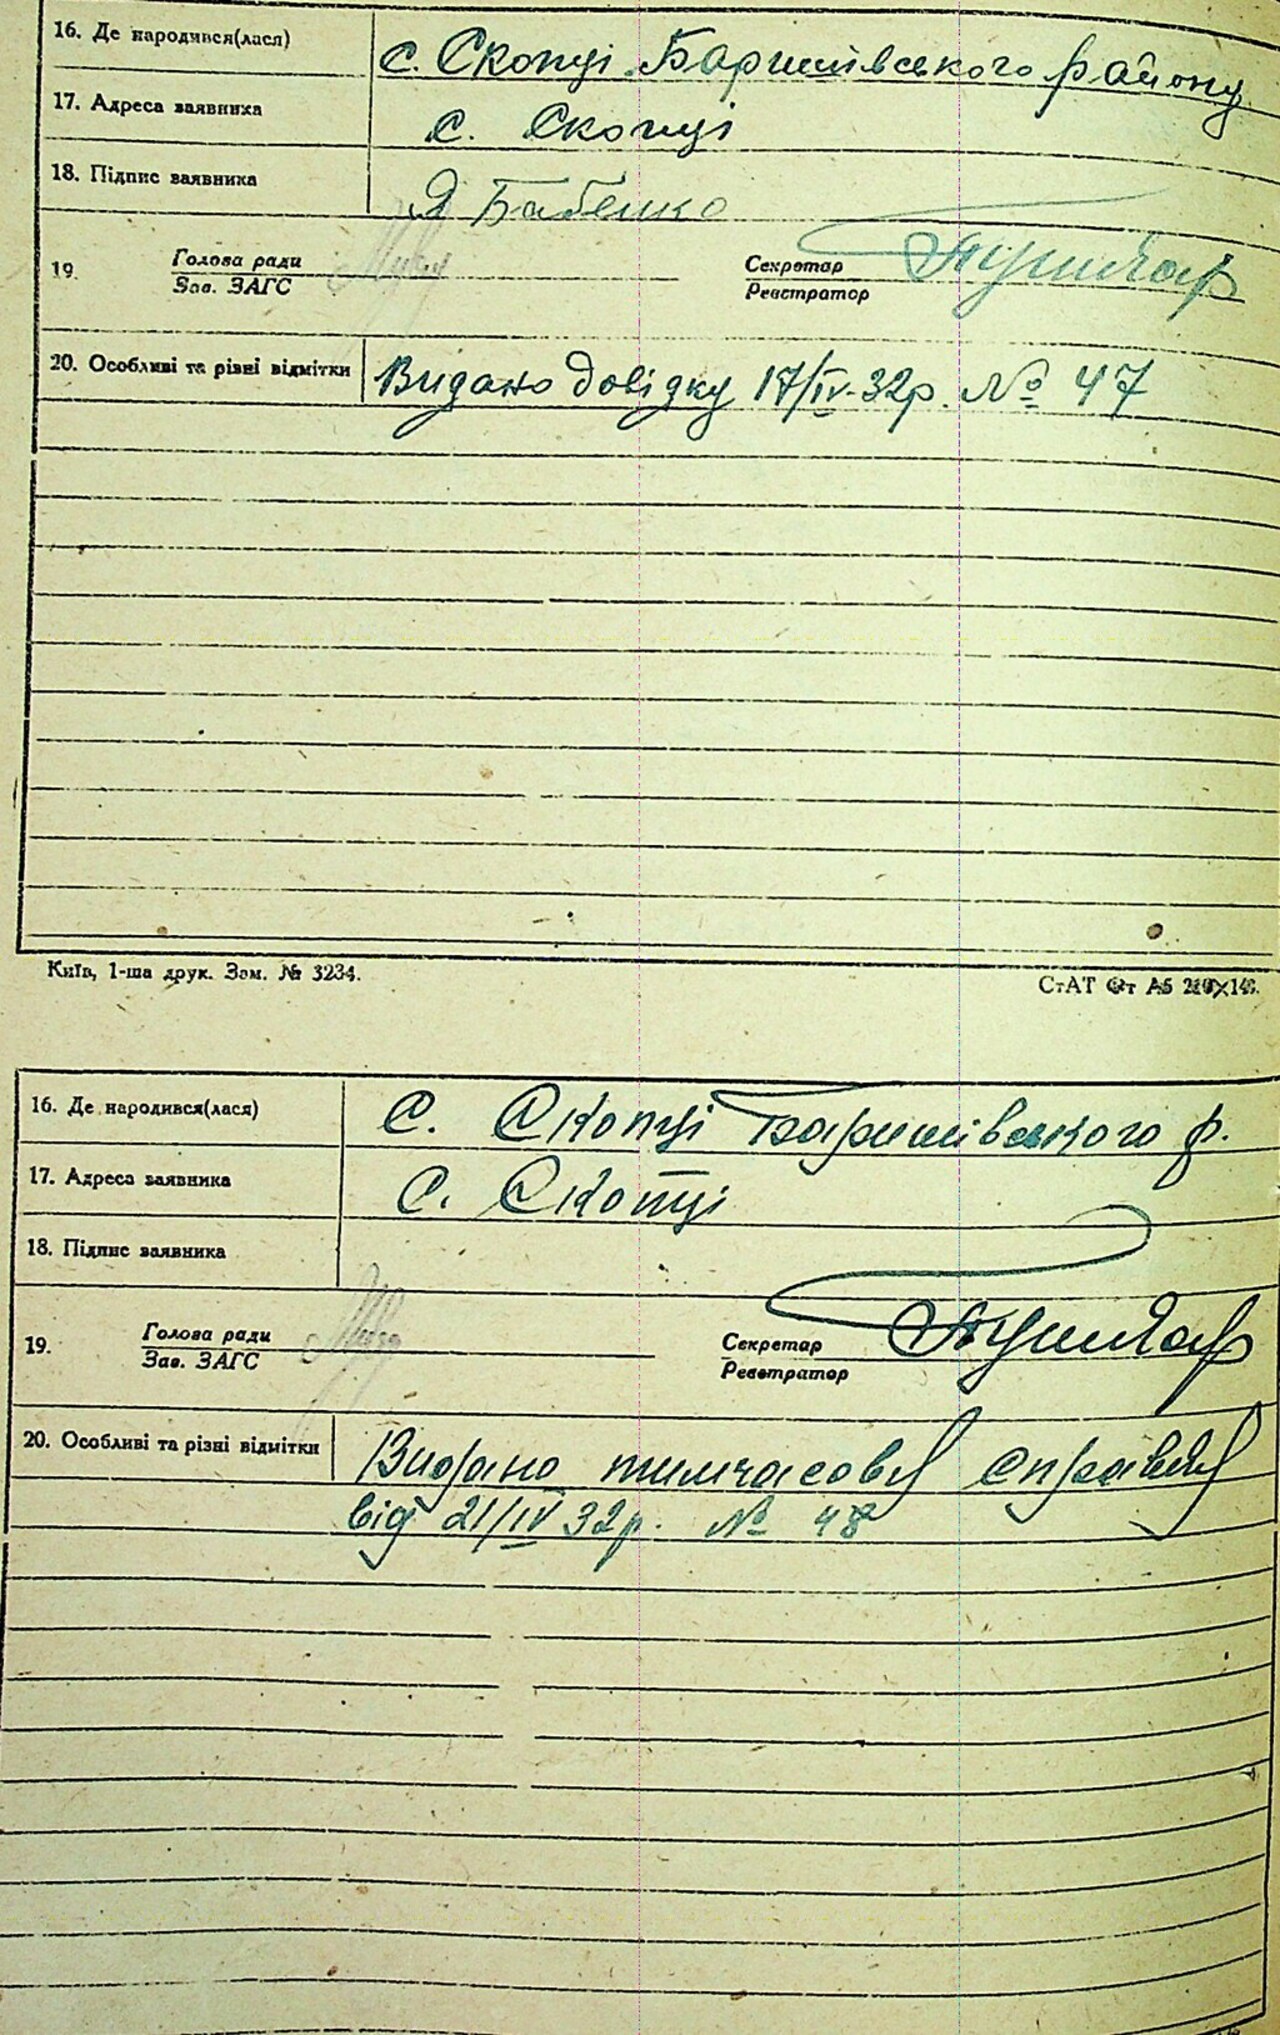 16. Де народився(лася) с. Скопці Баришівського району
17. Адреса заявника с. Скопці
18. Підпис заявника Я Бабенко
19. Голова ради Секретар
Зав. ЗАГС Реєстратор
20. Особливі та різні відмітки Видано довідку 17/IV-32р. № 47
Київ, 1-ша друк. Зам. № 3234.
СтАТ Фт А5
16. Де народився(лася) с. Скопці Баришівського р.
17. Адреса заявника с. Скопці
18. Підпис заявника
19. Голова ради Секретар
Зав. ЗАГС Реєстратор
20. Особливі та різні відмітки Видано тимчасову
від 21/IV 32р. № 48